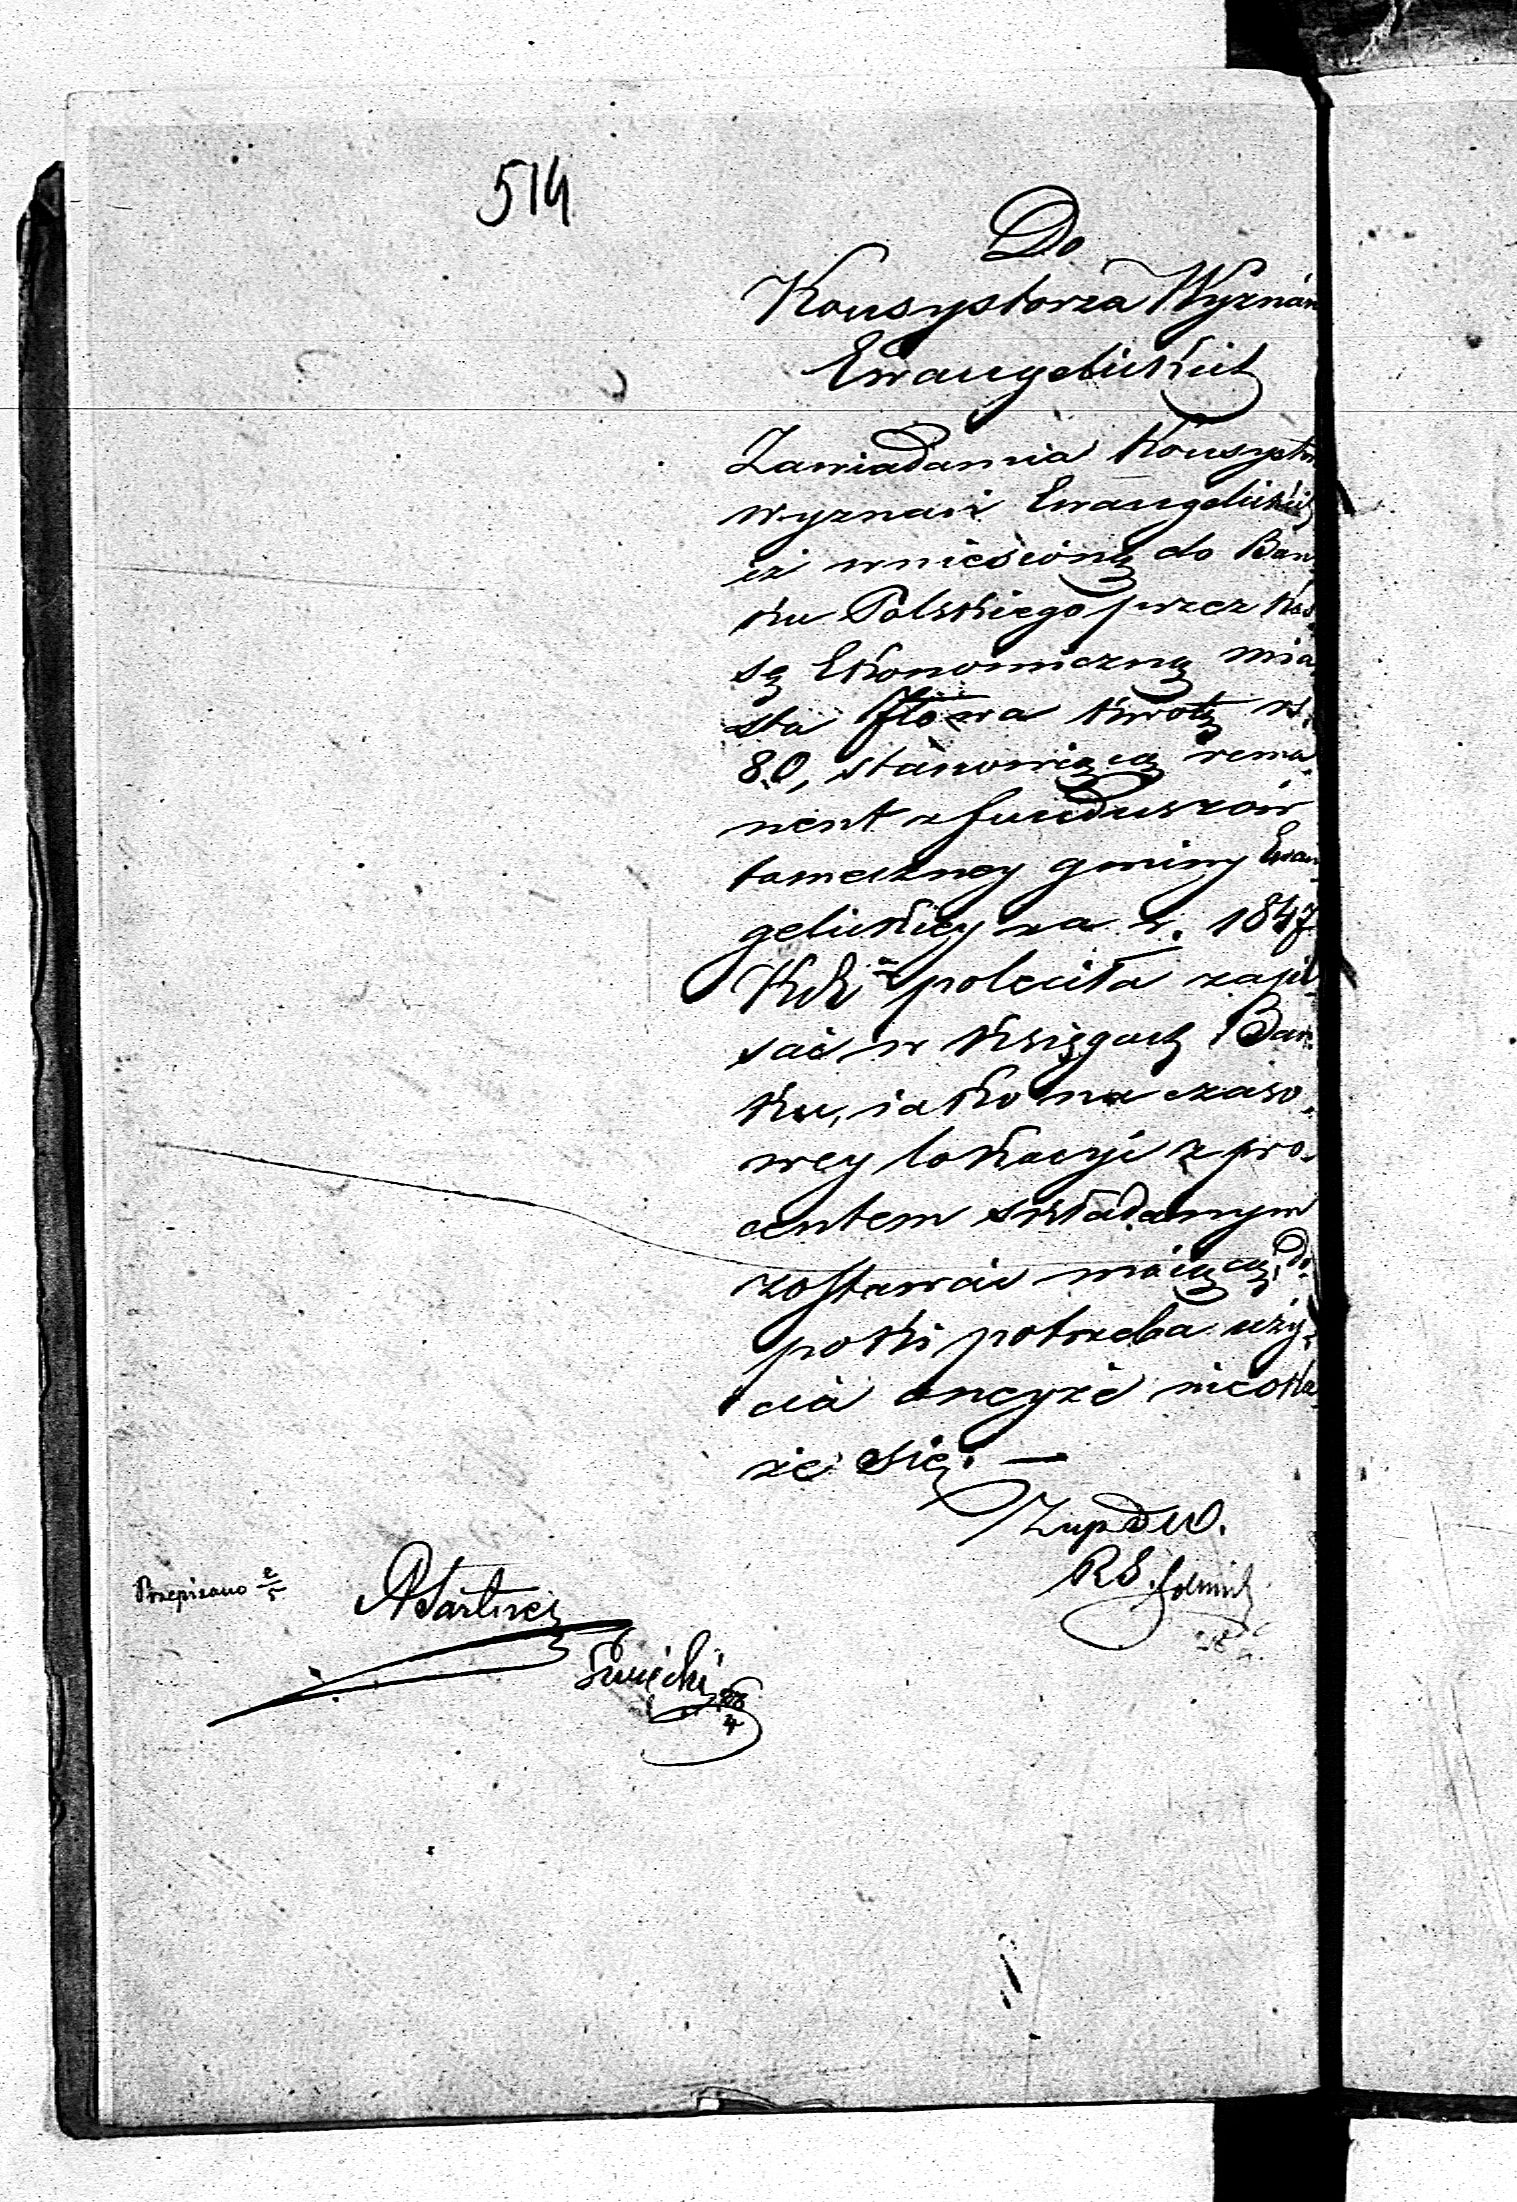 514
Do
Konsystorza Wyznań
Ewangelickich
Zawiadamia Konsystorz
wyznań Ewangelickich
iż wniesioną do Ban
ku Polskiego przez Kas
sę Ekonomiczną mia
sta Iłowa kwotę rs.
80, stanowiącą rema
nent z funduszów
tameczney gminy Ewan
gelickiey za r. 1847
poleciła zapi
sać w Księgach Ban
ku, iako na czaso
wey lokacyi z pro
centem składanym
zostawać maiącą, do
poki potrzeba uży
cia oneyże nieoka
że się. —
Z up. D. W.
R S.
Przepisano 2/5